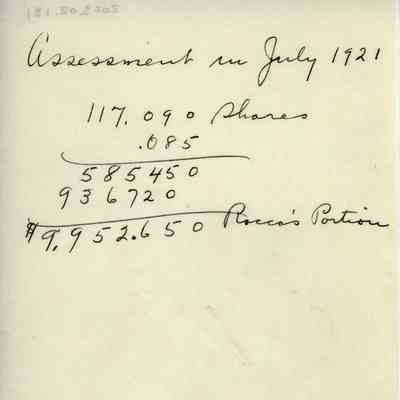 Assessment in July 1921
117.090 Shares
.085
585450
936720
$9,952.650 Rocco's Portion